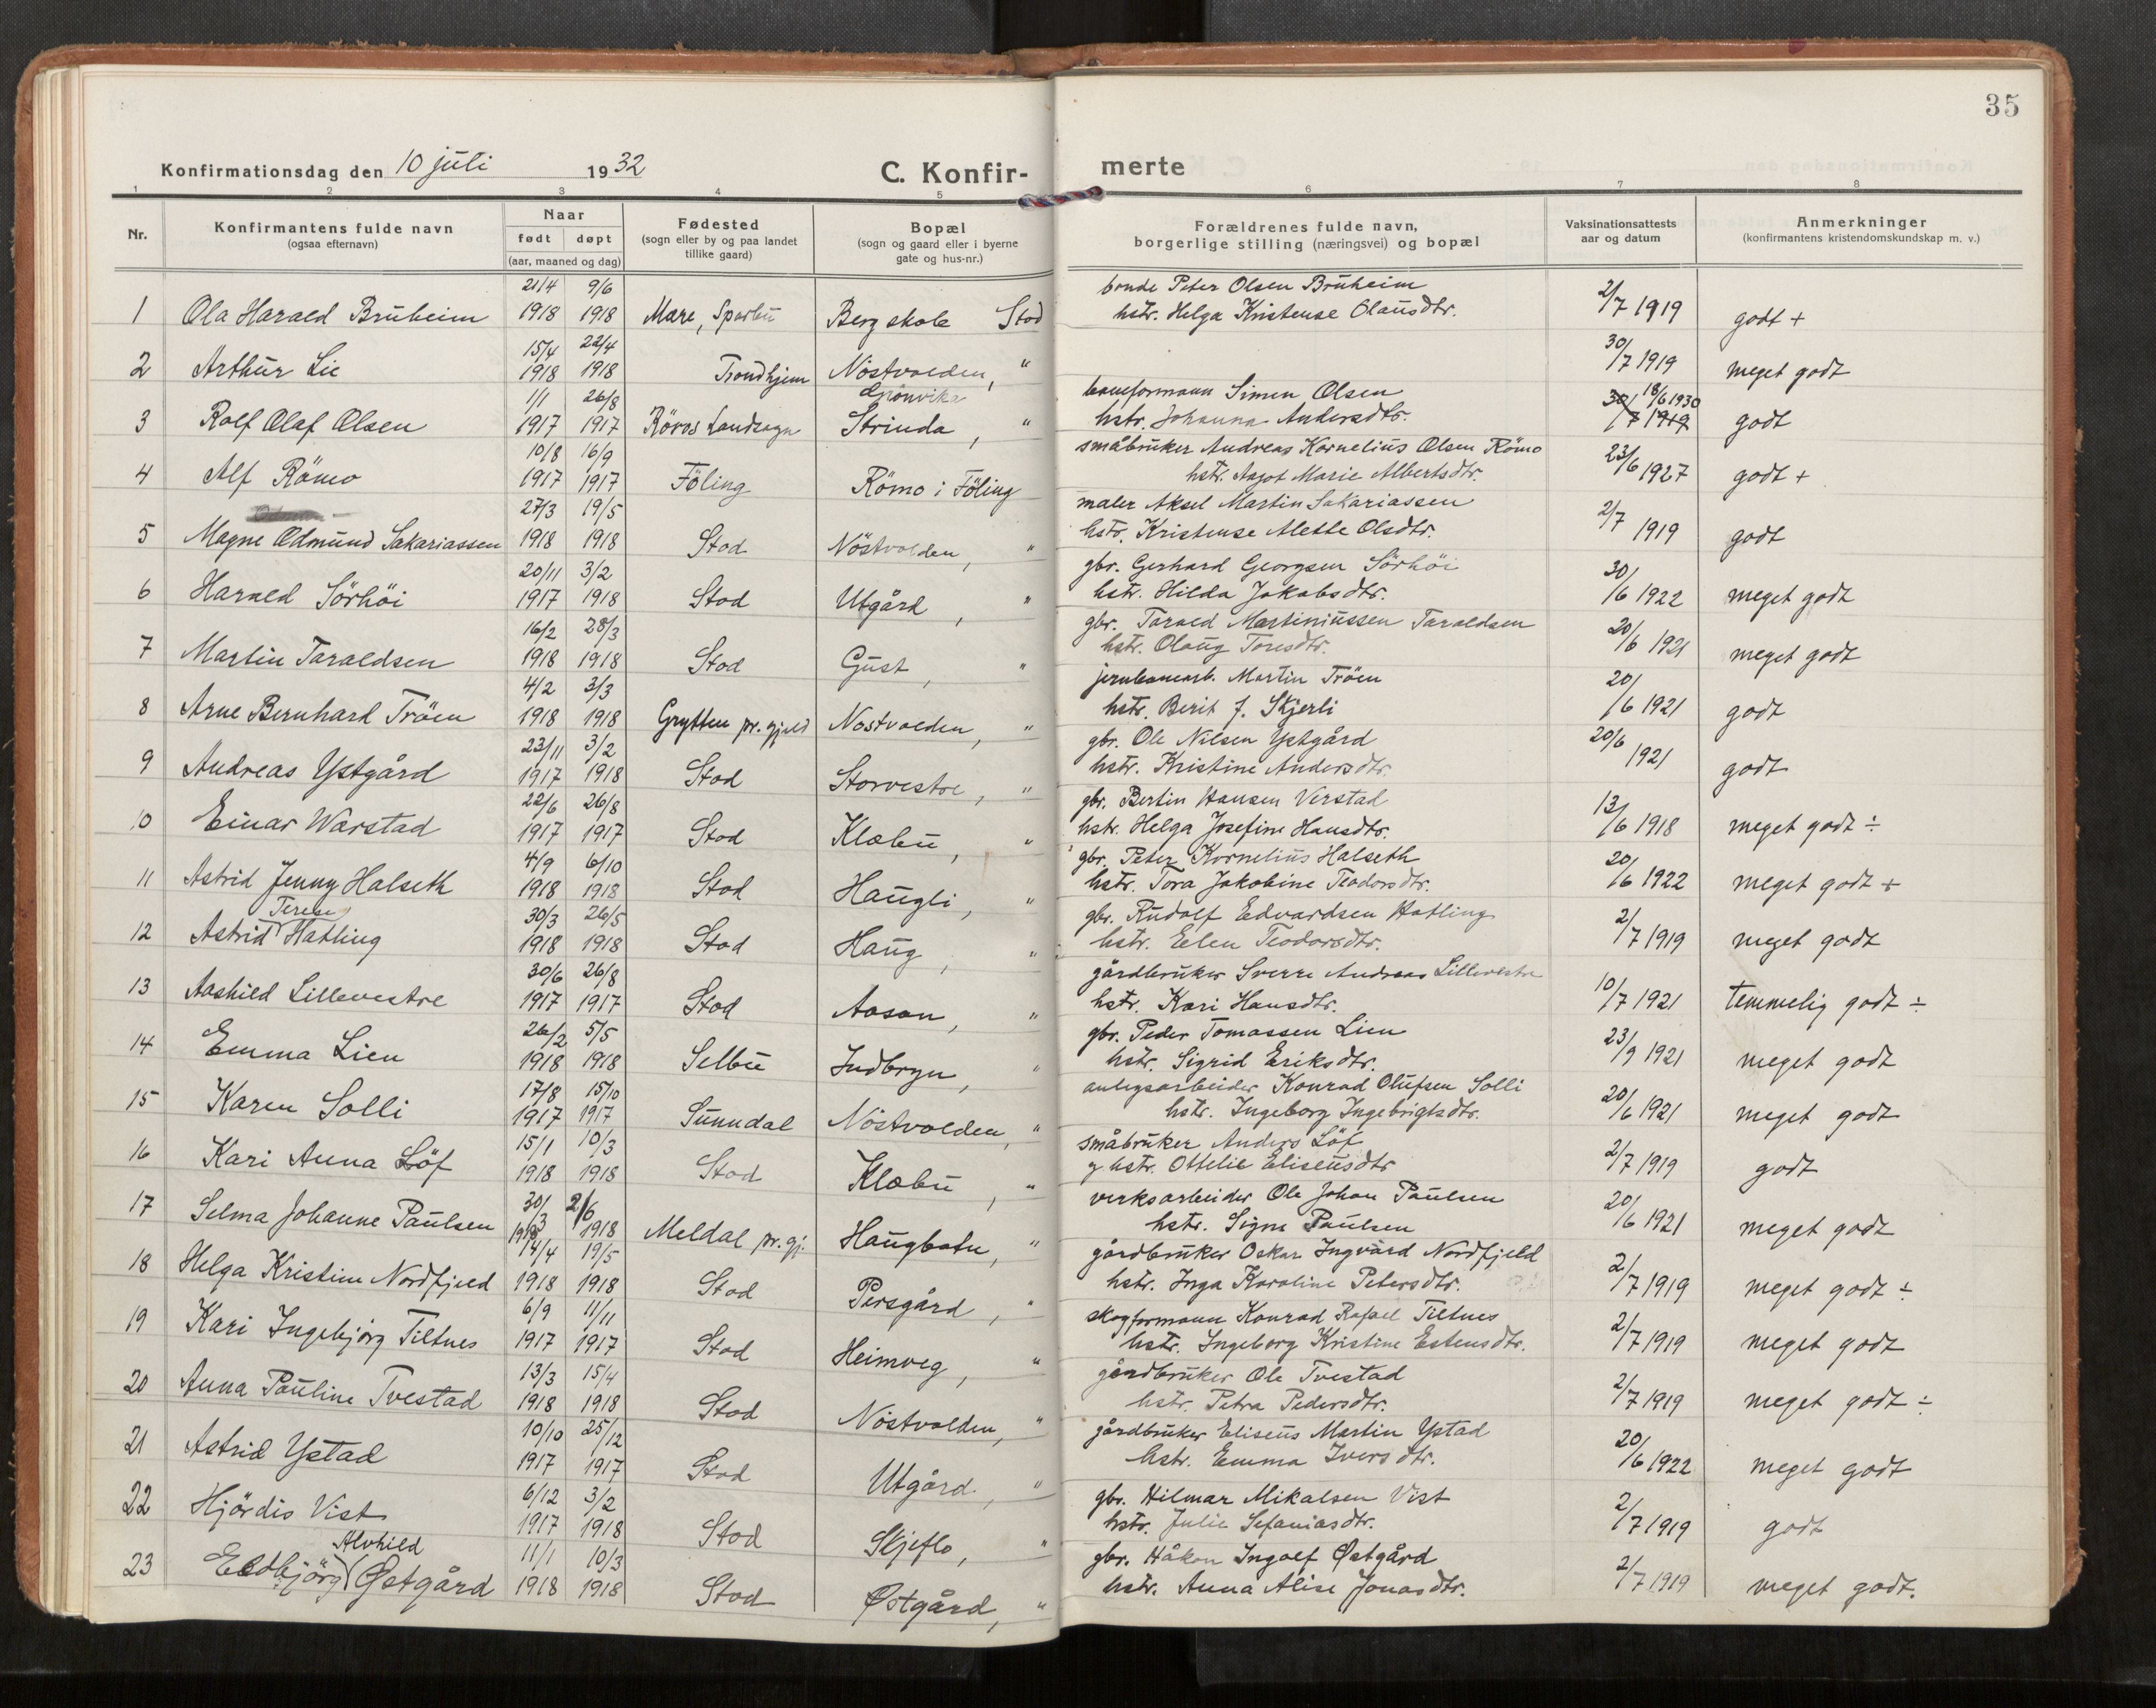 35
Konfirmationsdag den 10 juli 1932 C. Konfirmerte
1 2 3 4 5 6 7 8
Nr. Konfirmantens fulde navn (ogsaa efternavn) Naar født døpt (aar, maaned og dag) Fødested (sogn eller by og paa landet tillike gaard) Bopæl (sogn og gaard eller i byerne gate og hus-nr.) Forældrenes fulde navn, borgerlige stilling (næringsvei) og bopæl Vaksinationsattests aar og datum Anmerkninger (konfirmantens kristendomskundskap m. v.)
1 Ola Harald Bruheim 21/4 1918 9/6 1918 Mære, Sparbu Berg skole Stod bonde Peter Olsen Bruheim hstr. Helga Kristense Olausdtr. 2/7 1919 godt +
2 Arthur Lie 15/4 1918 22/4 1918 Trondhjem Nöstvolden, " 30/7 1919 meget godt
3 Rolf Olaf Olsen 1/1 1917 26/8 1917 Röros Landsogn Strinda, " baneformann Simen Olsen hstr. Johanna Andersdtr. 30/7 1919 18/6 1930 godt
4 Alf Römo 10/8 1917 16/9 1917 Föling Römo i Föling småbruker Andreas Kornelius Olsen Römo hstr. Aagot Marie Albertsdtr. 23/6 1927 godt +
5 Magne Odmund Sakariassen 27/3 1918 19/5 1918 Stod Nöstvolden, " maler Aksel Martin Sakariassen hstr. Kristense Alette Olsdtr. 2/7 1919 godt
6 Harald Sörhöi 20/11 1917 3/2 1918 Stod Utgård, " gbr. Gerhard Georgsen Sörhöi hstr. Hilda Jakobsdtr. 30/6 1922 meget godt
7 Martin Taraldsen 16/2 1918 28/3 1918 Stod Gust, " gbr. Tarald Martiniussen Taraldsen hstr. Olaug Toresdtr. 20/6 1921 meget godt
8 Arne Bernhard Tröen 4/2 1918 3/3 1918 Grytten pr. gjeld Nöstvolden, " jernbanearb. Martin Tröen hstr. Berit J. Skjerli 20/6 1921 godt
9 Andreas Ystgård 23/11 1917 3/2 1918 Stod Storvestre, " gbr. Ole Nilsen Ystgård hstr. Kristine Andersdtr. 20/6 1921 godt
10 Einar Warstad 22/6 1917 26/8 1917 Stod Klæbu, " gbr. Bertin Hansen Verstad hstr. Helga Josefine Hansdtr. 13/6 1918 meget godt ÷
11 Astrid Jenny Halseth 4/9 1918 6/10 1918 Stod Haugli, " gbr. Peter Kornelius Halseth hstr. Tora Jakobine Teodorsdtr. 20/6 1922 meget godt +
12 Astrid Terese Hatling 30/3 1918 26/5 1918 Stod Haug, " gbr. Rudolf Edvardsen Hatling hstr. Elen Teodorsdtr. 2/7 1919 meget godt
13 Aashild Lillevestre 30/6 1917 26/8 1917 Stod Aasan, " gårdbruker Sverre Andreas Lillevestre hstr. Kari Hansdtr. 10/7 1921 temmelig godt ÷
14 Emma Lien 26/2 1918 5/5 1918 Selbu Indbryn, " gbr. Peder Tomassen Lien hstr. Sigrid Eriksdtr. 23/9 1921 meget godt
15 Karen Solli 17/8 1917 15/10 1917 Sunndal Nöstvolden, " anlegsarbeider Konrad Olufsen Solli hstr. Ingeborg Ingebrigtsdtr. 20/6 1921 meget godt
16 Kari Anna Löf 15/1 1918 10/3 1918 Stod Klæbu, " småbruker Anders Löf og hstr. Ottelie Eliseusdtr 2/7 1919 godt
17 Selma Johanne Paulsen 30/3 1918 2/6 1918 Meldal pr. gj. Haugbotn, " verksarbeider Ole Johan Paulsen hstr. Signe Paulsen 20/6 1921 meget godt
18 Helga Kristine Nordfjeld 14/4 1918 19/5 1918 Stod Persgård, " gårdbruker Oskar Ingvard Nordfjeld hstr. Inga Karoline Petersdtr. 2/7 1919 meget godt ÷
19 Kari Ingebjörg Tiltnes 6/9 1917 11/11 1917 Stod Heimveg, " skogformann Konrad Rafael Tiltnes hstr. Ingeborg Kristine Estensdtr. 2/7 1919 meget godt
20 Anna Pauline Tvestad 13/3 1918 15/4 1918 Stod Nöstvolden, " gårdbruker Ole Tvestad hstr. Petra Pedersdtr. 2/7 1919 meget godt ÷
21 Astrid Ystad 10/10 1917 25/12 1917 Stod Utgård, " gårdbruker Eliseus Martin Ystad hstr. Emma Iversdtr. 20/6 1922 meget godt
22 Hjördis Vist 6/12 1917 3/2 1918 Stod Skjeflo, " gbr. Hilmar Mikalsen Vist hstr. Julie Sefaniasdtr. 2/7 1919 godt
23 Eldbjörg Alvhild Østgård 11/1 1918 10/3 1918 Stod Østgård, " gbr. Håkon Ingolf Østgård hstr. Anna Alise Jonasdtr. 2/7 1919 meget godt.